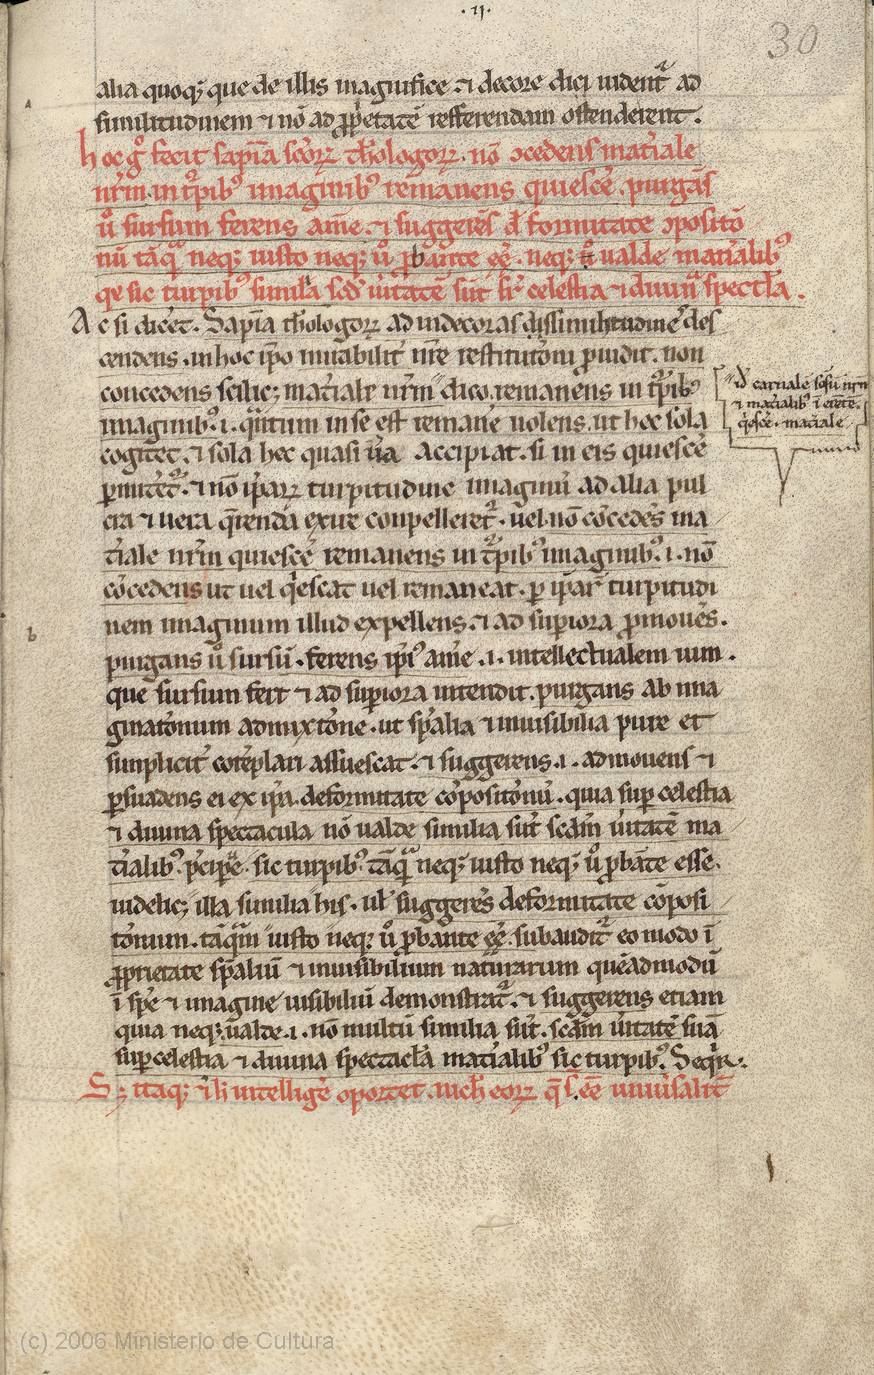 ·II·
30
alia quoq; que de illis magnifice ⁊ decore dici uident᷑ ad
similitudinem ⁊ nō ad ꝓp̓etatē refferendam ostenderent.
hoc gͦ fecit sapīa sc̄oꝝ th̓ologoꝝ. nō ↄcedens mat̓iale
nr̄m in t᷑pibꝰ imaginibꝰ remanens quiesce̓. purgās
u̓o sursum ferens am̄e. ⁊ suggerēs d̓formitate ↄpositō
nū tāqͣ neq; iusto neq; u̓o ꝓbante ee̓. neq; ualde mat̓ialibꝰ
qe sic turpibꝰ simila scd̓ u̓itatē sūt celestia ⁊ diuīa spectla.
Ac si dic̓et. Sapīa th̓ologoꝝ ad indecoras dissimilitudineˢ des
cendens. in hoc ip̄o mirabilit̓ nr̄e restitutōni ꝓuidit. non
concedens scilic; mat̓iale nr̄m dico. remanens in t᷑pibꝰ
imaginibꝰ. i. qͣntum in se est remane̓ uolens. ut hec sola
cogitet. ⁊ sola hec quasi ūa accipiat. si in eis quiesce̓
ꝑmitet᷑. ⁊ nō ip̄aꝝ turpitudine imaginū ad alia pul
cra ⁊ uera q̄renda exire conpelleret᷑. ūel nō cōcedēs ma
t̓iale nr̄m quiesce̓ remanens in t᷑pibꝰ imaginibꝰ. i. nō
cōcedens ut uel qͥescat uel remaneat. ꝑ ip̄aꝝ turpitudi
nem imaginum illud expellens. ⁊ ad supiora ꝓmouēs.
purgans u̓o sursū. ferens ip̄i am̄e. i. intellectualem uim.
que sursum fert ⁊ ad supiora intendit. purgans ab ima
ginatōnum admixtōne. ut sp̄alia ⁊ inuisibilia pure et
simplicit̓ cōtēplari assuescat. ⁊ suggerens. i. admouens ⁊
ꝑsuadens ei ex ip̄a deformitate cōpositōnū. quia suꝑcelestia
⁊ diuina spectacula nō ualde similia sūt scdm̄ u̓itatē ma
t̓ialibꝰ. p̓cipue. sic turpibꝰ. tāqͣ neq; iusto neq; u̓o ꝓbāte esse.
uidelic; illa similia his. ul̓ suggerēs deformitate cōposi
tōnum. tāqͣm iusto neq; u̓o ꝓbante ee̓. subaudit᷑ eo modo ī
ꝓprietate sp̄aliū ⁊ inuisibilium naturarum quēadmodū
ī spē ⁊ imagine uisibiliū demonstrat᷑. ⁊ suggerens etiam
quia neq; ualde. i. nō multū similia sūt. scdm̄ u̓itatē suā
suꝑcelestia ⁊ diuina spectacla mat̓ialibꝰ sic turpibꝰ. Seqͥr.
S; itaq; intellige̓ oportet. eoꝝ q̄ s. ee uniu̓salit̓
id carnalē sēsū nr̄m
⁊ mat̓ialibꝰ
qͥesce̓. mat̓iale
a
b
(c) 2006 Ministerio de Cultura